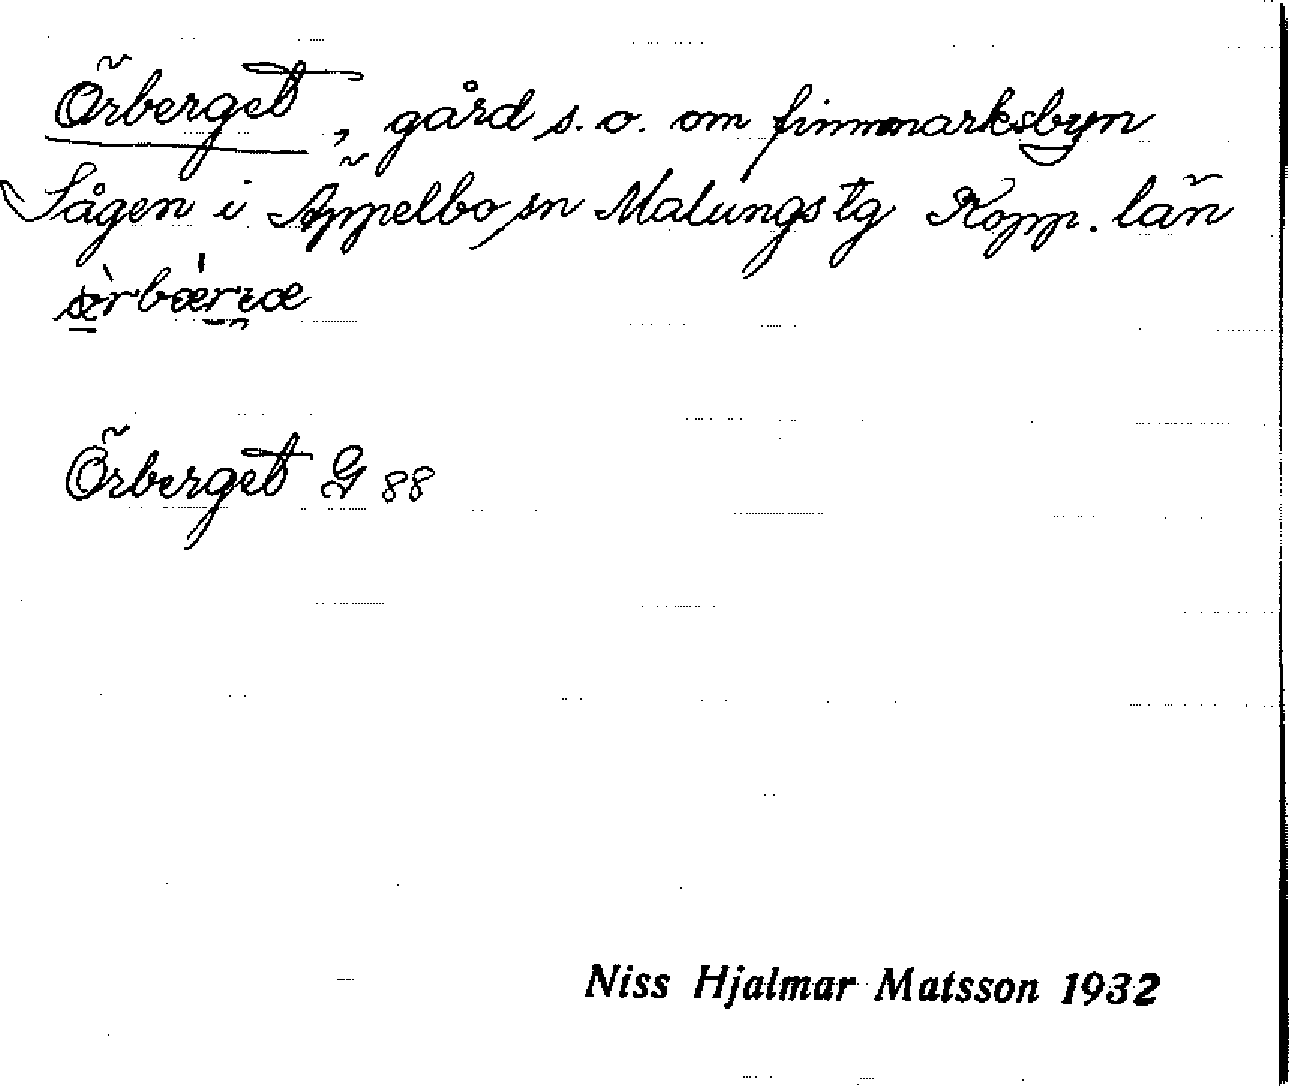 Örberget, gård s.o. om finnmarksbyn
Sågen i Äppelbo sn Malungs tg Kopp. län
Örberget G 88
Niss Hjalmar Matsson 1932